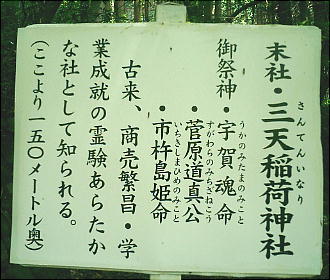 末社・三天稲荷神社
さんてんいなり
御祭神・宇賀魂命
うかのみたまのみこと
・菅原道真公
すがわらのみちざねこう
・市杵島姫命
いちきしまひめのみこと
古来、商売繁昌・学
業成就の霊験あらたか
な社として知られる。
（ここより一五〇メートル奥）